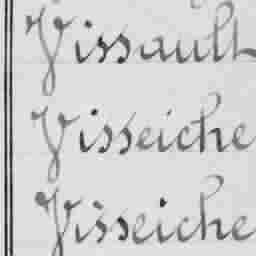 Vissault
Visseiche
Visseiche